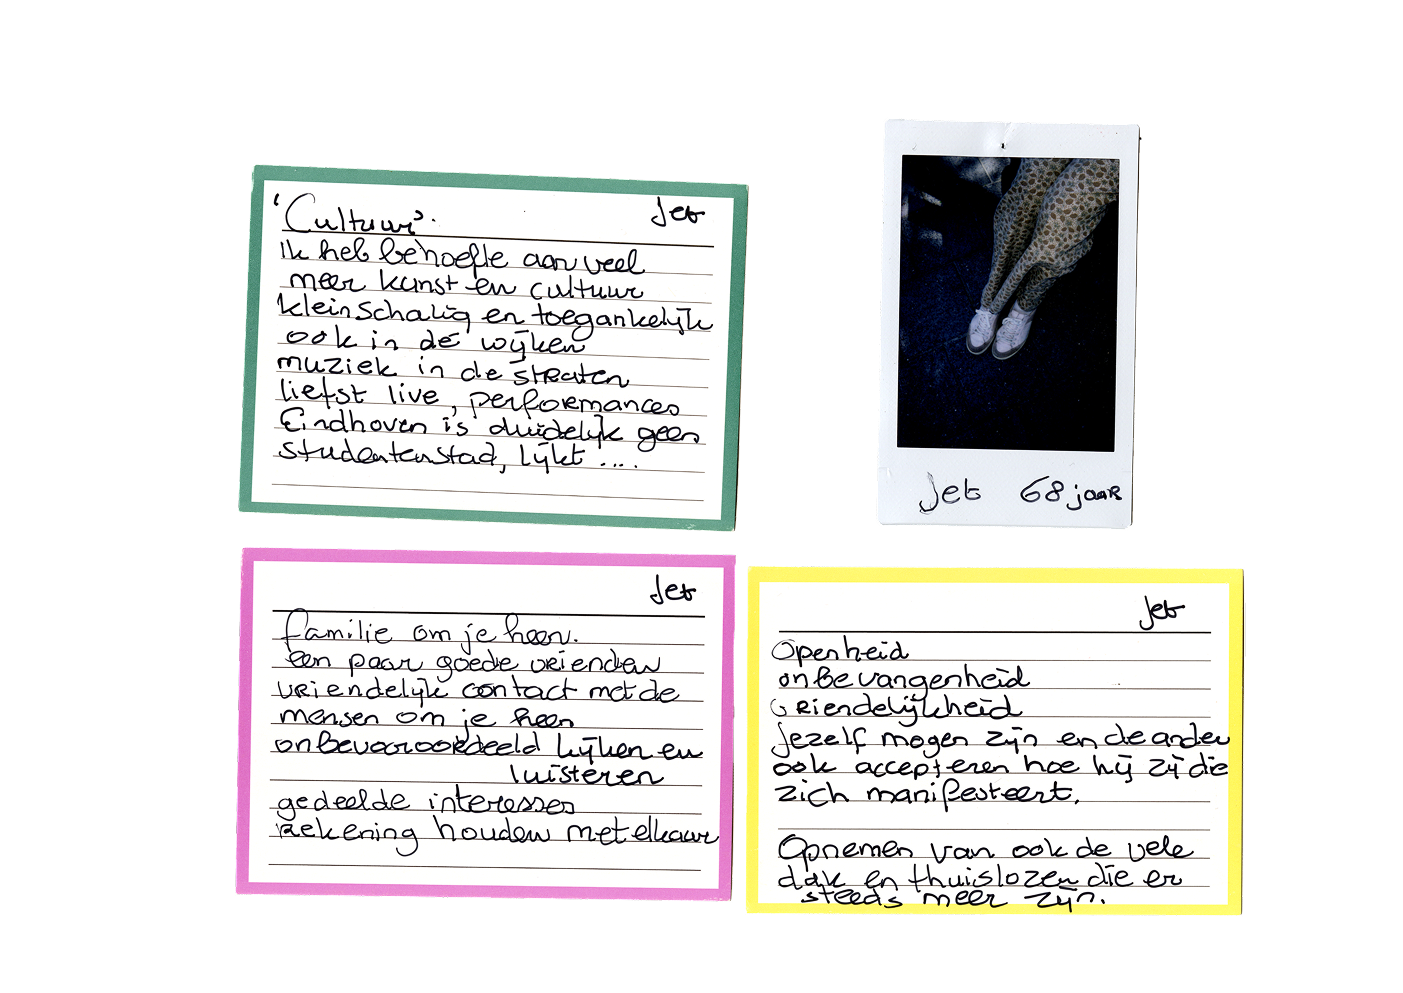 Jet
'Cultuur'.
ik heb behoefte aan veel
meer kunst en cultuur
kleinschalig en toegankelijk
ook in de wijken
muziek in de straten
liefst live, performances
Eindhoven is duidelijk geen
studentenstad, lijkt ....
Jet 68 jaar
Jet
familie om je heen.
een paar goede vrienden
vriendelijk contact met de
mensen om je heen
onbevooroordeeld kijken en
luisteren
gedeelde interesses
Rekening houden met elkaar
Jet
Openheid
onbevangenheid
vriendelijkheid
Jezelf mogen zijn en de ander
ook accepteren hoe hij zij die
zich manifesteert.
Opnemen van ook de vele
dak en thuislozen die er
steeds meer zijn.